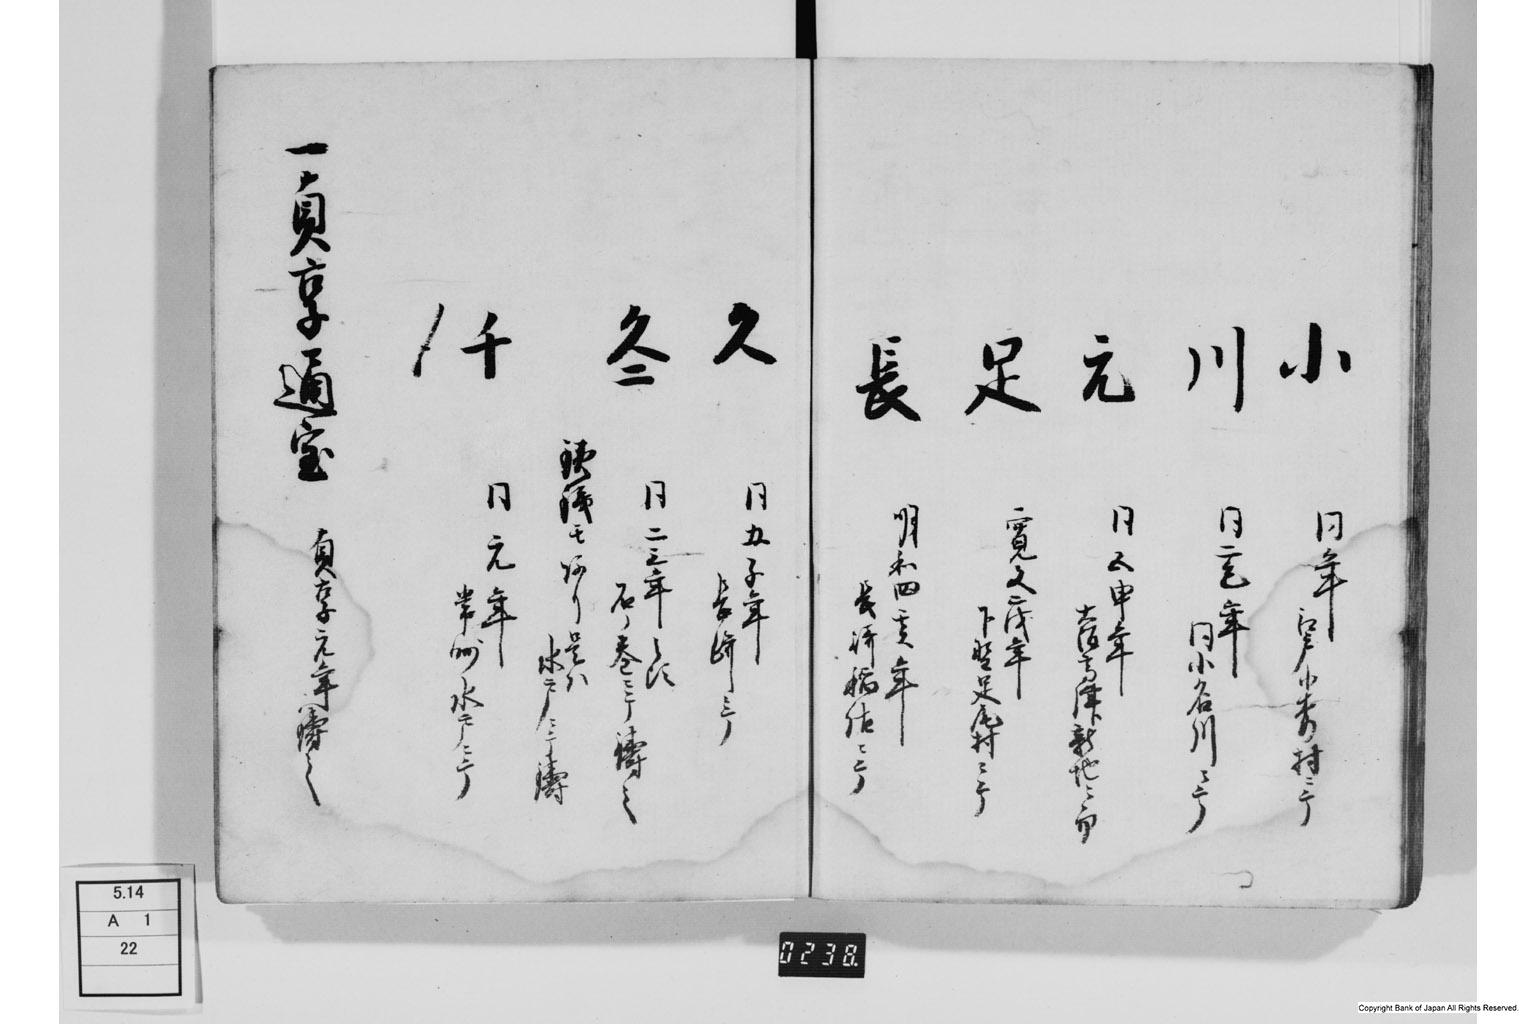 小
同年
江戸小菴村ニ而
川
同二巳年
同小名川ニ而
元
同五申年
大坂高津新地ニ而
足
寛文二戌年
下野足尾村ニ而
長
明和四亥年
長崎稲佐ニ而
久
同五子年
長崎ニ而
久二
同二三年之頃
石ノ巻ニ而鋳之
鉄銭モ有リ是ハ
水戸ニ而鋳
千
同元年
常州水戸ニ而
ノ
一貞享通宝
貞享元年鋳之
5.14
A 1
22
0238.
Copyright Bank of Japan All Rights Reserved.